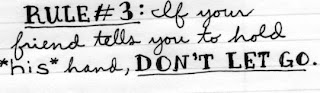 RULE #3: If your
friend tells you to hold
*his* hand, DON'T LET GO.